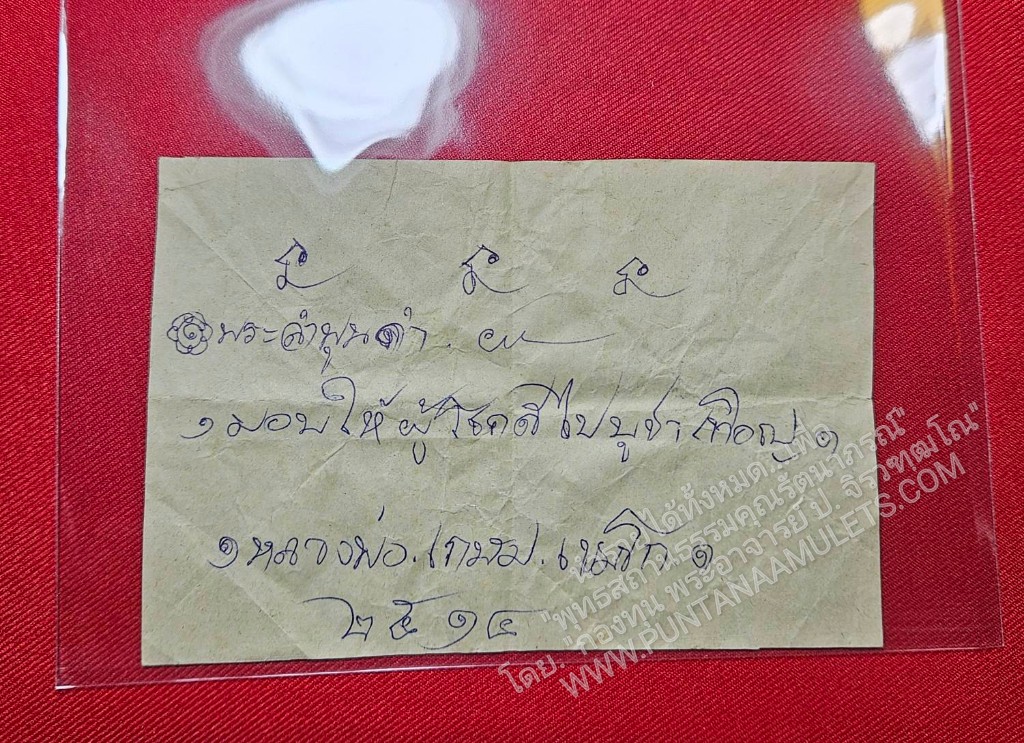 พระลำพูนดำ.
๑ มอบให้ ผู้โชคดีไปบูชา ๑
๑ หลวงพ่อ.เกษม.เขมโก ๑
๒๕๑๔
ได้ทั้งหมด เพื่อ
"พุทธสถานธรรมคุณรัตนาภรณ์"
โดย: "กองทุน พระอาจารย์ ป. จิรวฑฒโณ"
WWW.PUNTANAAMULETS.COM